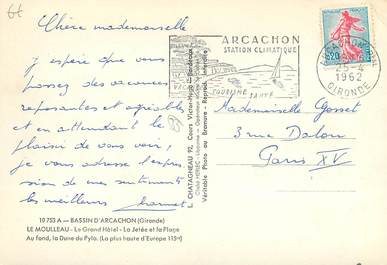 Chère mademoiselle
j'espère que vous
passez des vacances
reposantes et agréable
et en attendant le
plaisir de vous voir,
je vous adresse l'expres
sion de mes sentiments
les meilleurs
18 753 A — BASSIN D'ARCACHON (Gironde)
LE MOULLEAU - Le Grand Hôtel - La Jetée et la Plage
Au fond, la Dune du Pyla. (La plus haute d'Europe 115m)
L. CHATAGNEAU 92, Cours Victor-Hugo — Bordeaux
Véritable Photo au Bromure - Reprod. Interdite
ARCACHON
STATION CLIMATIQUE
TOURISME SANTÉ
0,20
1962
GIRONDE
Mademoiselle Gosset
3 rue Dalou
Paris XV